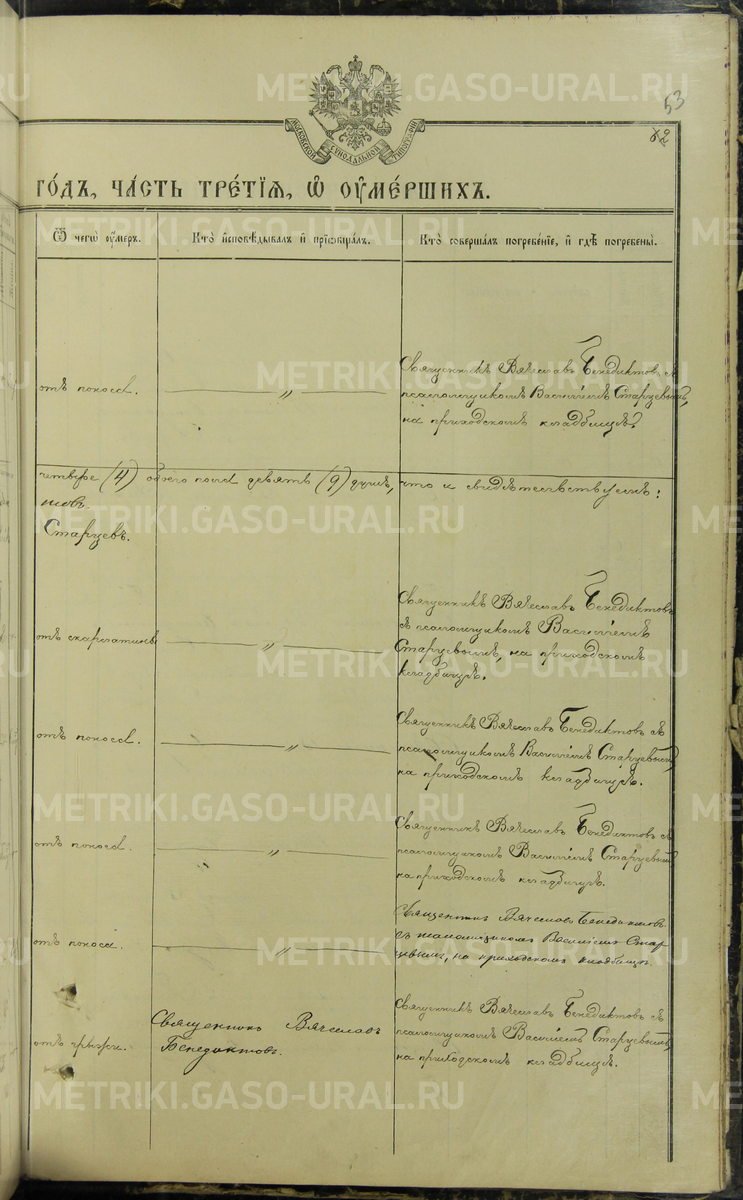 METRIKI.GASO-URAL.RU
53
62
МОСКОВСКОЙ СѴНОДАЛЬНОЙ ТИПОГРАФІИ
ГО́ДЪ, ЧА́СТЬ ТРЕ́ТІѦ, Ѽ ОУ҆МЕ́РШИХЪ.
Ѿ чегѡ̀ оу҆́меръ.
Кто̀ и҆сповѣ́дывалъ и҆ пріѡбща́лъ.
Кто̀ соверша́лъ погребе́ніе, и҆ гдѣ̀ погребены̀.
отъ поноса.
„
Священникъ Вячеславъ Бенедиктовъ съ
псаломщикомъ Василіемъ Старцевымъ,
на приходскомъ кладбищѣ.
четверо (4) обоего пола девять (9) душъ,
что и свидѣтельствуемъ:
товъ.
Старцевъ.
отъ скарлатины
„
Священникъ Вячеславъ Бенедиктовъ
съ псаломщикомъ Василіемъ
Старцевымъ, на приходскомъ
кладбищѣ.
отъ поноса.
„
Священникъ Вячеславъ Бенедиктовъ съ
псаломщикомъ Василіемъ Старцевымъ,
на приходскомъ кладбищѣ.
отъ поноса.
„
Священникъ Вячеславъ Бенедиктовъ съ
псаломщикомъ Василіемъ Старцевымъ
на приходскомъ кладбищѣ.
отъ поноса.
„
Священникъ Вячеславъ Бенедиктовъ
съ псаломщикомъ Василіемъ Стар
цевымъ, на приходскомъ кладбищѣ.
отъ грыжи.
Священникъ Вячеславъ
Бенедиктовъ.
Священникъ Вячеславъ Бенедиктовъ съ
псаломщикомъ Василіемъ Старцевымъ,
на приходскомъ кладбищѣ.